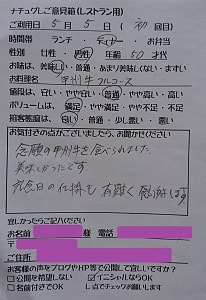 ナチュグしご意見箱(レストラン用)
ご利用日 5月 5日 ( 初 回目)
時間帯 ランチ・ディナー・お弁当
性別 女性・男性 年齢 50 才代
お味は、美味しい・普通・あまり美味しくない・まずい
お料理名 甲州牛フルコース
値段は、安い・やや安い・普通・やや高い・高い
ボリュームは、満足・やや満足・やや不足・不足
接客態度は、良い・普通・少し悪い・悪い
お気付きの点がございましたら、お聞かせください
念願の甲州牛を食べられました
美味しかったです
記念日の仕掛も 有難く感謝します
宜しかったらご記入ください
お名前 様 電話
〒
ご住所
お客様の声をブログやHP等で公開して宜しいですか?
□公開を希望しない □イニシャルならOK
□名前付きでOK し点でチェックお願いします